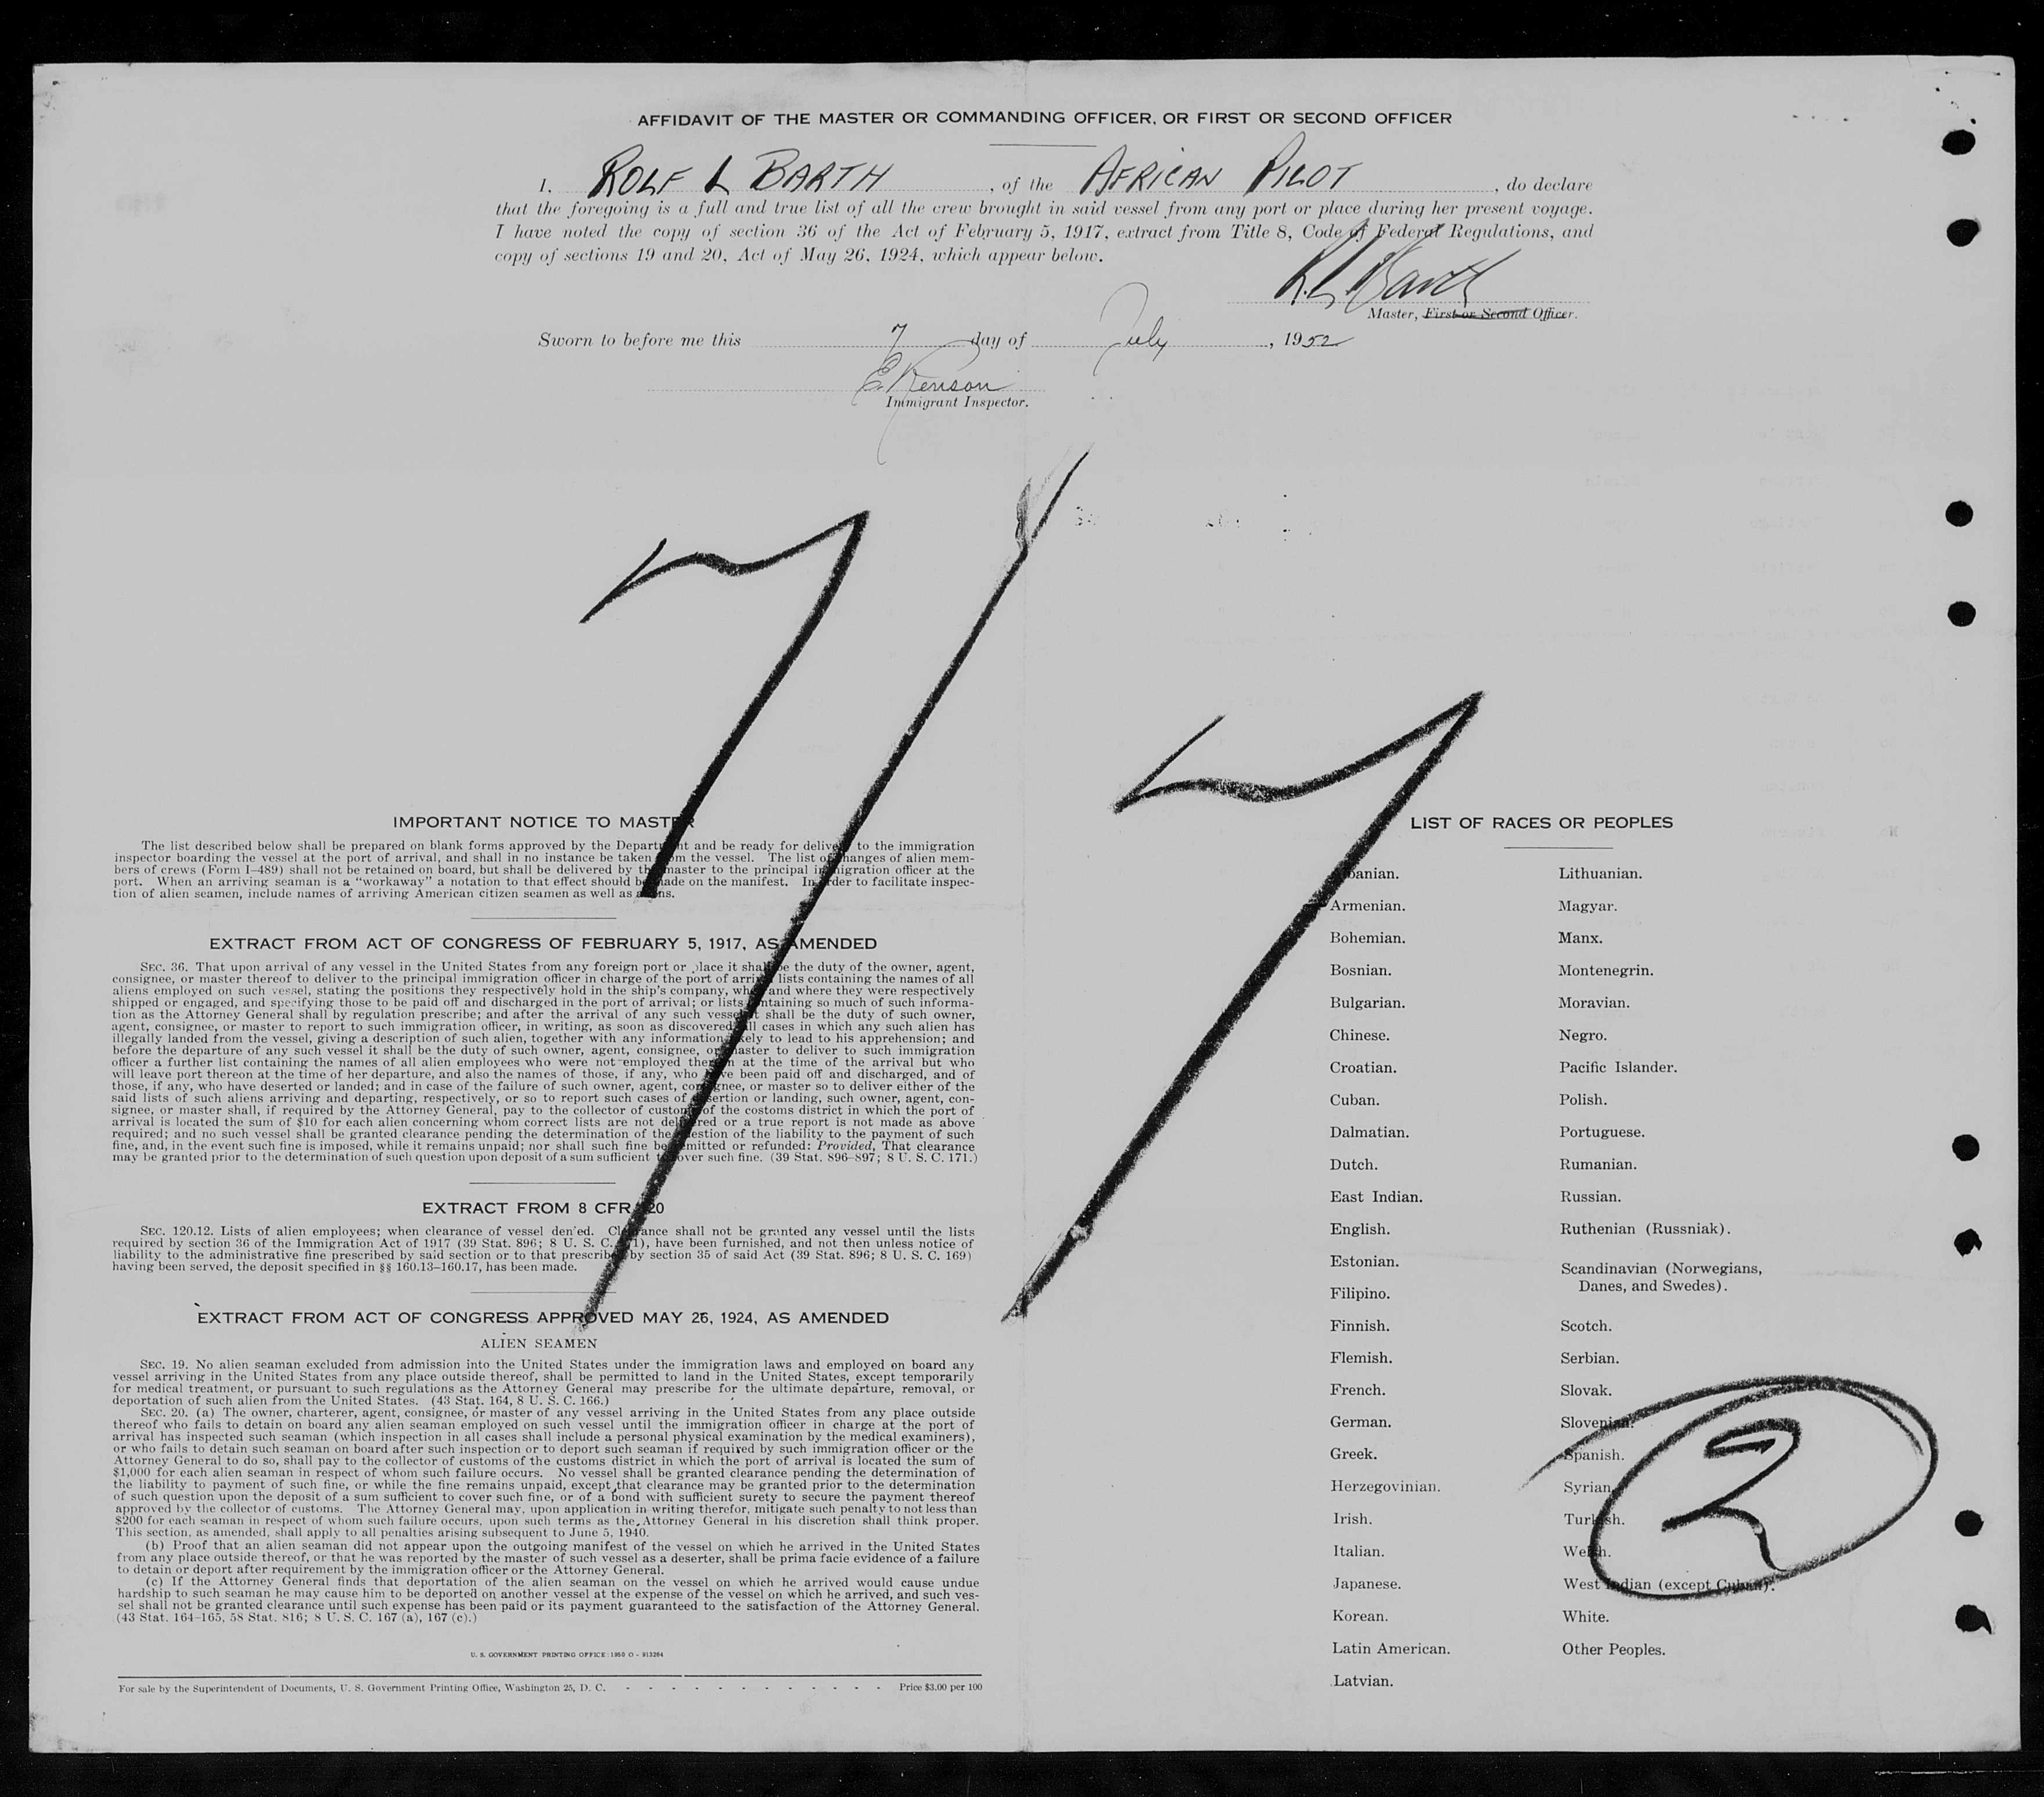 AFFIDAVIT OF THE MASTER OR COMMANDING OFFICER, OR FIRST OR SECOND OFFICER
I, ROLF L BARTH, of the AFRICAN PILOT, do declare
that the foregoing is a full and true list of all the crew brought in said vessel from any port or place during her present voyage.
I have noted the copy of section 36 of the Act of February 5, 1917, extract from Title 8, Code of Federal Regulations, and
copy of sections 19 and 20, Act of May 26, 1924, which appear below.
R.L. Barth
Master, First or Second Officer.
Sworn to before me this 7 day of July, 1952
E. Kenson
Immigrant Inspector.
7/7
IMPORTANT NOTICE TO MASTER
The list described below shall be prepared on blank forms approved by the Department and be ready for delivery to the immigration
inspector boarding the vessel at the port of arrival, and shall in no instance be taken from the vessel. The list of changes of alien mem-
bers of crews (Form I-489) shall not be retained on board, but shall be delivered by the master to the principal immigration officer at the
port. When an arriving seaman is a "workaway" a notation to that effect should be made on the manifest. In order to facilitate inspec-
tion of alien seamen, include names of arriving American citizen seamen as well as aliens.
EXTRACT FROM ACT OF CONGRESS OF FEBRUARY 5, 1917, AS AMENDED
SEC. 36. That upon arrival of any vessel in the United States from any foreign port or place it shall be the duty of the owner, agent,
consignee, or master thereof to deliver to the principal immigration officer in charge of the port of arrival lists containing the names of all
aliens employed on such vessel, stating the positions they respectively hold in the ship's company, when and where they were respectively
shipped or engaged, and specifying those to be paid off and discharged in the port of arrival; or lists containing so much of such informa-
tion as the Attorney General shall by regulation prescribe; and after the arrival of any such vessel it shall be the duty of such owner,
agent, consignee, or master to report to such immigration officer, in writing, as soon as discovered, all cases in which any such alien has
illegally landed from the vessel, giving a description of such alien, together with any information likely to lead to his apprehension; and
before the departure of any such vessel it shall be the duty of such owner, agent, consignee, or master to deliver to such immigration
officer a further list containing the names of all alien employees who were not employed thereon at the time of the arrival but who
will leave port thereon at the time of her departure, and also the names of those, if any, who have been paid off and discharged, and of
those, if any, who have deserted or landed; and in case of the failure of such owner, agent, consignee, or master so to deliver either of the
said lists of such aliens arriving and departing, respectively, or so to report such cases of desertion or landing, such owner, agent, con-
signee, or master shall, if required by the Attorney General, pay to the collector of customs of the costoms district in which the port of
arrival is located the sum of $10 for each alien concerning whom correct lists are not delivered or a true report is not made as above
required; and no such vessel shall be granted clearance pending the determination of the question of the liability to the payment of such
fine, and, in the event such fine is imposed, while it remains unpaid; nor shall such fine be remitted or refunded: Provided, That clearance
may be granted prior to the determination of such question upon deposit of a sum sufficient to cover such fine. (39 Stat. 896-897; 8 U. S. C. 171.)
EXTRACT FROM 8 CFR 120
SEC. 120.12. Lists of alien employees; when clearance of vessel denied. Clearance shall not be granted any vessel until the lists
required by section 36 of the Immigration Act of 1917 (39 Stat. 896; 8 U. S. C. 171), have been furnished, and not then unless notice of
liability to the administrative fine prescribed by said section or to that prescribed by section 35 of said Act (39 Stat. 896; 8 U. S. C. 169)
having been served, the deposit specified in §§ 160.13-160.17, has been made.
EXTRACT FROM ACT OF CONGRESS APPROVED MAY 26, 1924, AS AMENDED
ALIEN SEAMEN
SEC. 19. No alien seaman excluded from admission into the United States under the immigration laws and employed on board any
vessel arriving in the United States from any place outside thereof, shall be permitted to land in the United States, except temporarily
for medical treatment, or pursuant to such regulations as the Attorney General may prescribe for the ultimate departure, removal, or
deportation of such alien from the United States. (43 Stat. 164, 8 U. S. C. 166.)
SEC. 20. (a) The owner, charterer, agent, consignee, or master of any vessel arriving in the United States from any place outside
thereof who fails to detain on board any alien seaman employed on such vessel until the immigration officer in charge at the port of
arrival has inspected such seaman (which inspection in all cases shall include a personal physical examination by the medical examiners),
or who fails to detain such seaman on board after such inspection or to deport such seaman if required by such immigration officer or the
Attorney General to do so, shall pay to the collector of customs of the customs district in which the port of arrival is located the sum of
$1,000 for each alien seaman in respect of whom such failure occurs. No vessel shall be granted clearance pending the determination of
the liability to payment of such fine, or while the fine remains unpaid, except that clearance may be granted prior to the determination
of such question upon the deposit of a sum sufficient to cover such fine, or of a bond with sufficient surety to secure the payment thereof
approved by the collector of customs. The Attorney General may, upon application in writing therefor, mitigate such penalty to not less than
$200 for each seaman in respect of whom such failure occurs, upon such terms as the Attorney General in his discretion shall think proper.
This section, as amended, shall apply to all penalties arising subsequent to June 5, 1940.
(b) Proof that an alien seaman did not appear upon the outgoing manifest of the vessel on which he arrived in the United States
from any place outside thereof, or that he was reported by the master of such vessel as a deserter, shall be prima facie evidence of a failure
to detain or deport after requirement by the immigration officer or the Attorney General.
(c) If the Attorney General finds that deportation of the alien seaman on the vessel on which he arrived would cause undue
hardship to such seaman he may cause him to be deported on another vessel at the expense of the vessel on which he arrived, and such ves-
sel shall not be granted clearance until such expense has been paid or its payment guaranteed to the satisfaction of the Attorney General.
(43 Stat. 164-165, 58 Stat. 816; 8 U. S. C. 167 (a), 167 (c).)
U. S. GOVERNMENT PRINTING OFFICE: 1950 O - 913264
For sale by the Superintendent of Documents, U. S. Government Printing Office, Washington 25, D. C. - - - - - - - - - - - Price $3.00 per 100
LIST OF RACES OR PEOPLES
Albanian.
Armenian.
Bohemian.
Bosnian.
Bulgarian.
Chinese.
Croatian.
Cuban.
Dalmatian.
Dutch.
East Indian.
English.
Estonian.
Filipino.
Finnish.
Flemish.
French.
German.
Greek.
Herzegovinian.
Irish.
Italian.
Japanese.
Korean.
Latin American.
Latvian.
Lithuanian.
Magyar.
Manx.
Montenegrin.
Moravian.
Negro.
Pacific Islander.
Polish.
Portuguese.
Rumanian.
Russian.
Ruthenian (Russniak).
Scandinavian (Norwegians,
Danes, and Swedes).
Scotch.
Serbian.
Slovak.
Slovenian.
Spanish.
Syrian.
Turkish.
Welsh.
West Indian (except Cuban).
White.
Other Peoples.
2